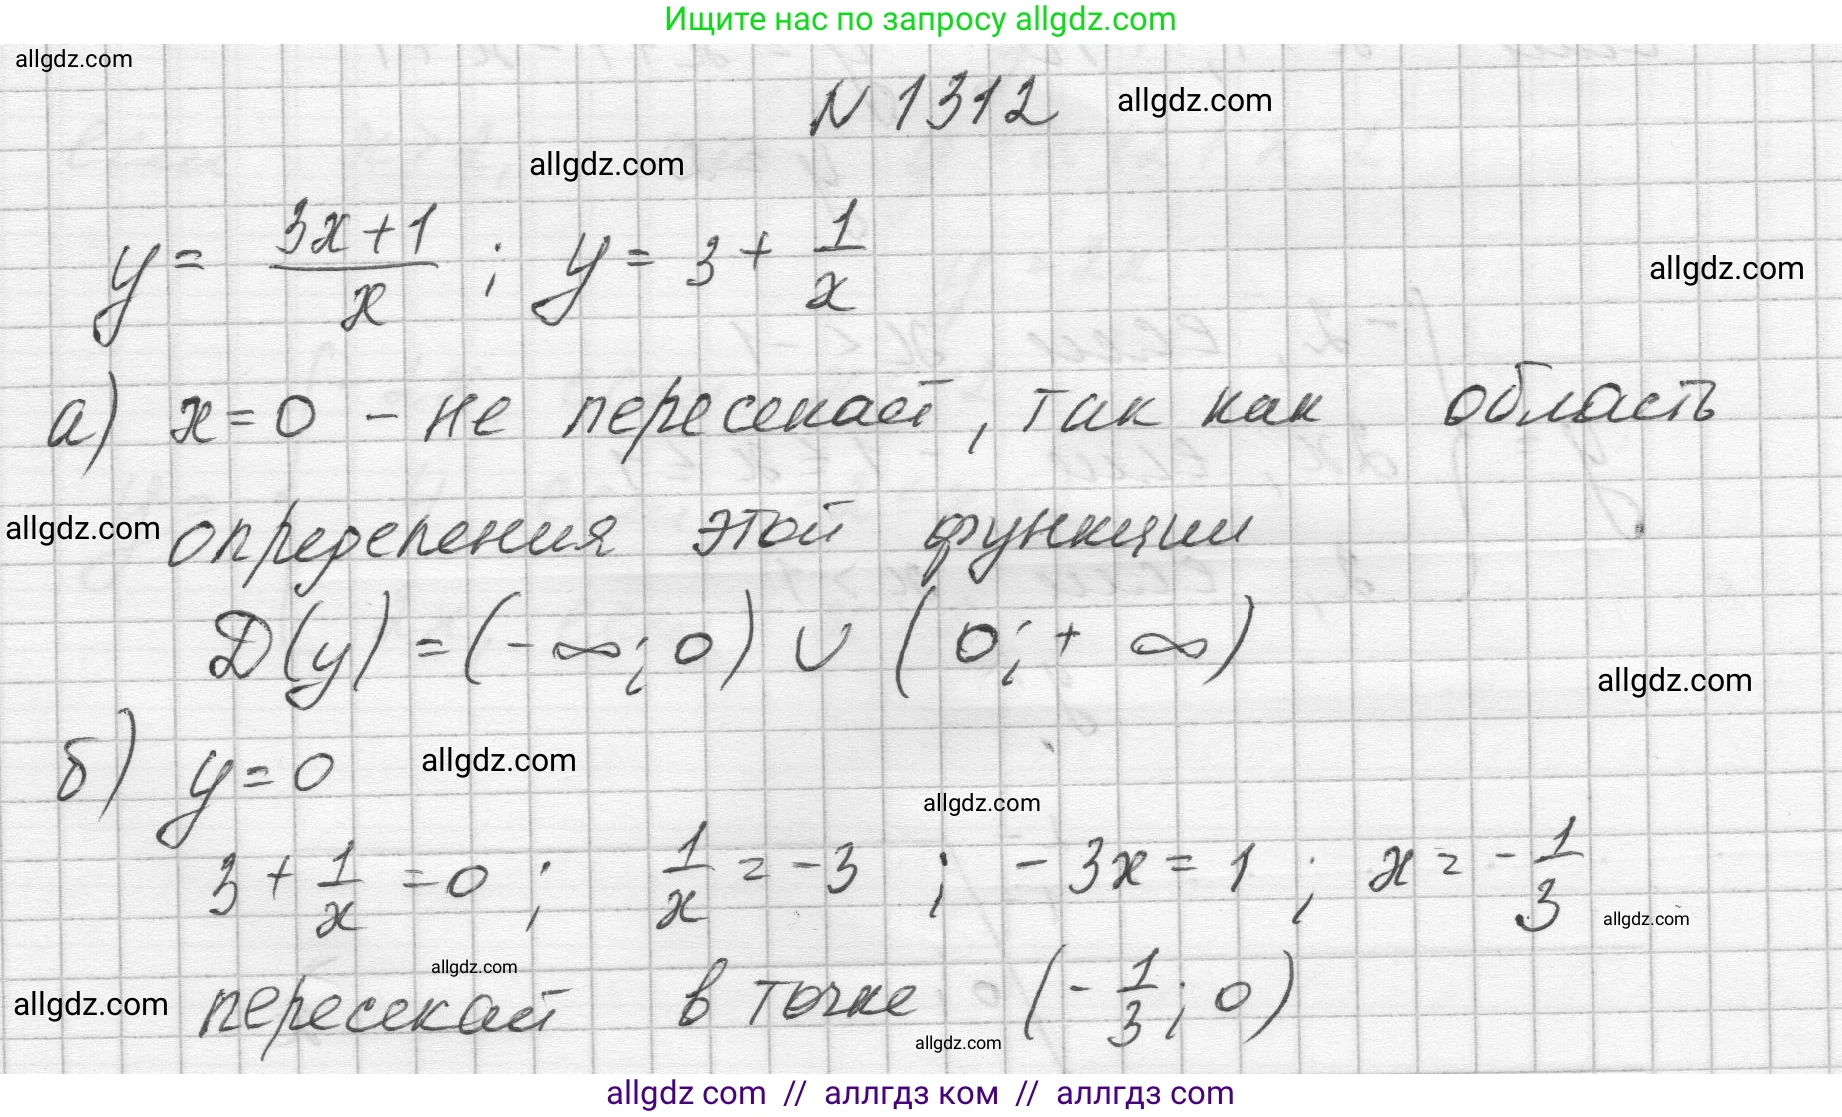 Ищите нас по запросу allgdz.com
allgdz.com
N 1312 allgdz.com
allgdz.com
y = \frac{3x+1}{x} ; y = 3 + \frac{1}{x}
allgdz.com
а) x = 0 - не пересекает, так как область
allgdz.com определения этой функции
D(y) = (-∞; 0) ∪ (0; +∞)
allgdz.com
б) y = 0 allgdz.com
allgdz.com
3 + \frac{1}{x} = 0 ; \frac{1}{x} = -3 ; -3x = 1 ; x = -\frac{1}{3} allgdz.com
allgdz.com
allgdz.com пересекает в точке (-\frac{1}{3}; 0)
allgdz.com
allgdz com // аллгдз ком // аллгдз com